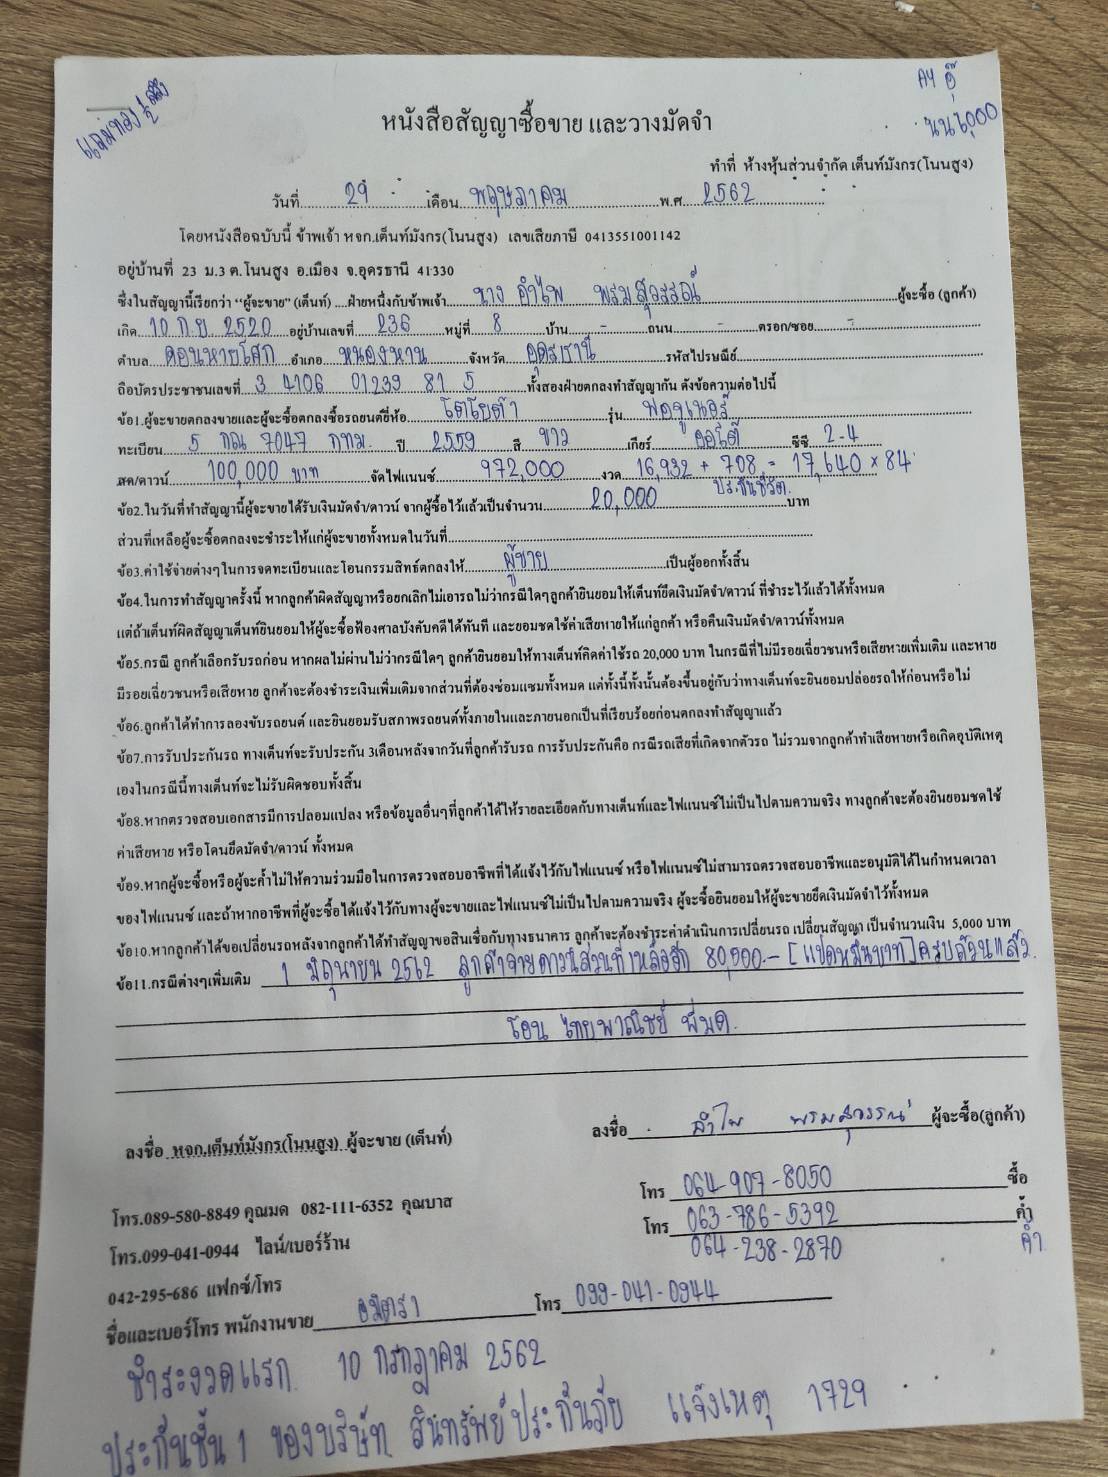 แถมทอง 1/2 สลึง
AY อุ๊
นน 1,000
หนังสือสัญญาซื้อขาย และวางมัดจำ
ทำที่ ห้างหุ้นส่วนจำกัด เต็นท์มังกร(โนนสูง)
วันที่ 29 เดือน พฤษภาคม พ.ศ. 2562
โดยหนังสือฉบับนี้ ข้าพเจ้า หจก.เต็นท์มังกร(โนนสูง) เลขเสียภาษี 0413551001142
อยู่บ้านที่ 23 ม.3 ต.โนนสูง อ.เมือง จ.อุดรธานี 41330
ซึ่งในสัญญานี้เรียกว่า "ผู้จะขาย" (เต็นท์) ฝ่ายหนึ่งกับข้าพเจ้า นาง อำไพ พรมสุวรรณ์ ผู้จะซื้อ (ลูกค้า)
เกิด 10 ก.ย. 2520 อยู่บ้านเลขที่ 236 หมู่ที่ 8 บ้าน - ถนน - ตรอก/ซอย -
ตำบล ดอนหายโศก อำเภอ หนองหาน จังหวัด อุดรธานี รหัสไปรษณีย์
ถือบัตรประชาชนเลขที่ 3 4106 01239 81 5 ทั้งสองฝ่ายตกลงทำสัญญากัน ดังข้อความต่อไปนี้
ข้อ1.ผู้จะขายตกลงขายและผู้จะซื้อตกลงซื้อรถยนต์ยี่ห้อ โตโยต้า รุ่น ฟอจูเนอร์
ทะเบียน 5 กณ 7047 กทม. ปี 2559 สี ขาว เกียร์ ออโต้ ซีซี 2.4
สด/ดาวน์ 100,000 บาท จัดไฟแนนซ์ 972,000 งวด 16,932 + 708 = 17,640 × 84
ประกันชีวิต
ข้อ2.ในวันที่ทำสัญญานี้ผู้จะขายได้รับเงินมัดจำ/ดาวน์ จากผู้ซื้อไว้แล้วเป็นจำนวน 20,000 บาท
ส่วนที่เหลือผู้จะซื้อตกลงจะชำระให้แก่ผู้จะขายทั้งหมดในวันที่
ข้อ3.ค่าใช้จ่ายต่างๆในการจดทะเบียนและโอนกรรมสิทธ์ตกลงให้ ผู้ขาย เป็นผู้ออกทั้งสิ้น
ข้อ4.ในการทำสัญญาครั้งนี้ หากลูกค้าผิดสัญญาหรือยกเลิกไม่เอารถไม่ว่ากรณีใดๆลูกค้ายินยอมให้เต็นท์ยึดเงินมัดจำ/ดาวน์ ที่ชำระไว้แล้วได้ทั้งหมด
แต่ถ้าเต็นท์ผิดสัญญาเต็นท์ยินยอมให้ผู้จะซื้อฟ้องศาลบังคับคดีได้ทันที และยอมชดใช้ค่าเสียหายให้แก่ลูกค้า หรือคืนเงินมัดจำ/ดาวน์ทั้งหมด
ข้อ5.กรณี ลูกค้าเลือกรับรถก่อน หากผลไม่ผ่านไม่ว่ากรณีใดๆ ลูกค้ายินยอมให้ทางเต็นท์คิดค่าใช้รถ 20,000 บาท ในกรณีที่ไม่มีรอยเฉี่ยวชนหรือเสียหายเพิ่มเติม และหาย
มีรอยเฉี่ยวชนหรือเสียหาย ลูกค้าจะต้องชำระเงินเพิ่มเติมจากส่วนที่ต้องซ่อมแซมทั้งหมด แต่ทั้งนี้ทั้งนั้นต้องขึ้นอยู่กับว่าทางเต็นท์จะยินยอมปล่อยรถให้ก่อนหรือไม่
ข้อ6.ลูกค้าได้ทำการลองขับรถยนต์ และยินยอมรับสภาพรถยนต์ทั้งภายในและภายนอกเป็นที่เรียบร้อยก่อนตกลงทำสัญญาแล้ว
ข้อ7.การรับประกันรถ ทางเต็นท์จะรับประกัน 3เดือนหลังจากวันที่ลูกค้ารับรถ การรับประกันคือ กรณีรถเสียที่เกิดจากตัวรถ ไม่รวมจากลูกค้าทำเสียหายหรือเกิดอุบัติเหตุ
เองในกรณีนี้ทางเต็นท์จะไม่รับผิดชอบทั้งสิ้น
ข้อ8.หากตรวจสอบเอกสารมีการปลอมแปลง หรือข้อมูลอื่นๆที่ลูกค้าได้ให้รายละเอียดกับทางเต็นท์และไฟแนนซ์ไม่เป็นไปตามความจริง ทางลูกค้าจะต้องยินยอมชดใช้
ค่าเสียหาย หรือโดนยึดมัดจำ/ดาวน์ ทั้งหมด
ข้อ9.หากผู้จะซื้อหรือผู้จะค้ำไม่ให้ความร่วมมือในการตรวจสอบอาชีพที่ได้แจ้งไว้กับไฟแนนซ์ หรือไฟแนนซ์ไม่สามารถตรวจสอบอาชีพและอนุมัติได้ในกำหนดเวลา
ของไฟแนนซ์ และถ้าหากอาชีพที่ผู้จะซื้อได้แจ้งไว้กับทางผู้จะขายและไฟแนนซ์ไม่เป็นไปตามความจริง ผู้จะซื้อยินยอมให้ผู้จะขายยึดเงินมัดจำไว้ทั้งหมด
ข้อ10.หากลูกค้าได้ขอเปลี่ยนรถหลังจากลูกค้าได้ทำสัญญาขอสินเชื่อกับทางธนาคาร ลูกค้าจะต้องชำระค่าดำเนินการเปลี่ยนรถ เปลี่ยนสัญญา เป็นจำนวนเงิน 5,000 บาท
ข้อ11.กรณีต่างๆเพิ่มเติม 1 มิถุนายน 2562 ลูกค้าจ่ายดาวน์ส่วนที่เหลืออีก 80,000.- [แปดหมื่นบาท] ครบถ้วนแล้ว
โอน ไทยพาณิชย์ พี่มด
ลงชื่อ หจก.เต็นท์มังกร(โนนสูง) ผู้จะขาย (เต็นท์)
ลงชื่อ อำไพ พรมสุวรรณ์ ผู้จะซื้อ(ลูกค้า)
โทร 064-907-8050 ซื้อ
โทร.089-580-8849 คุณมด 082-111-6352 คุณบาส
โทร 063-786-5392 ค้ำ
โทร.099-041-0944 ไลน์/เบอร์ร้าน
064-238-2870 ค้ำ
042-295-686 แฟกซ์/โทร
ชื่อและเบอร์โทร พนักงานขาย อมิตรา โทร 099-041-0944
ชำระงวดแรก 10 กรกฎาคม 2562
ประกันชั้น 1 ของบริษัท สินทรัพย์ประกันภัย แจ้งเหตุ 1729